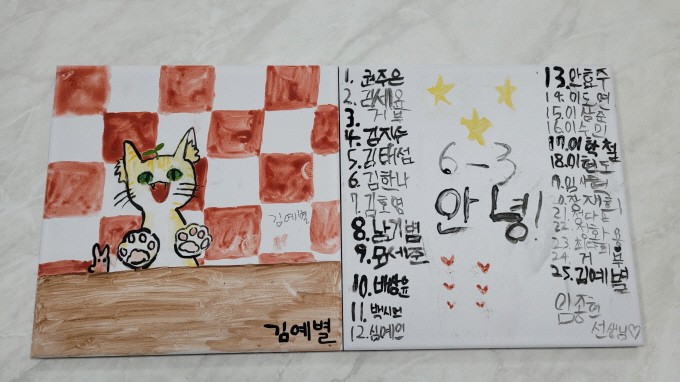 김예별
김예별
1. 권주은
2. 김세윤
3. 거부
4. 김지수
5. 김태섭
6. 김하나
7. 김호영
8. 남기범
9. 문세준
10. 배상윤
11. 백시현
12. 심예인
6-3
안녕!
13. 안효주
14. 이도연
15. 이상준
16. 이수민
17. 이학철
18. 이현도
19.
20. 장재희
21.
22.
23. 최
24. 거부
25. 김예별
임종현
선생님♡